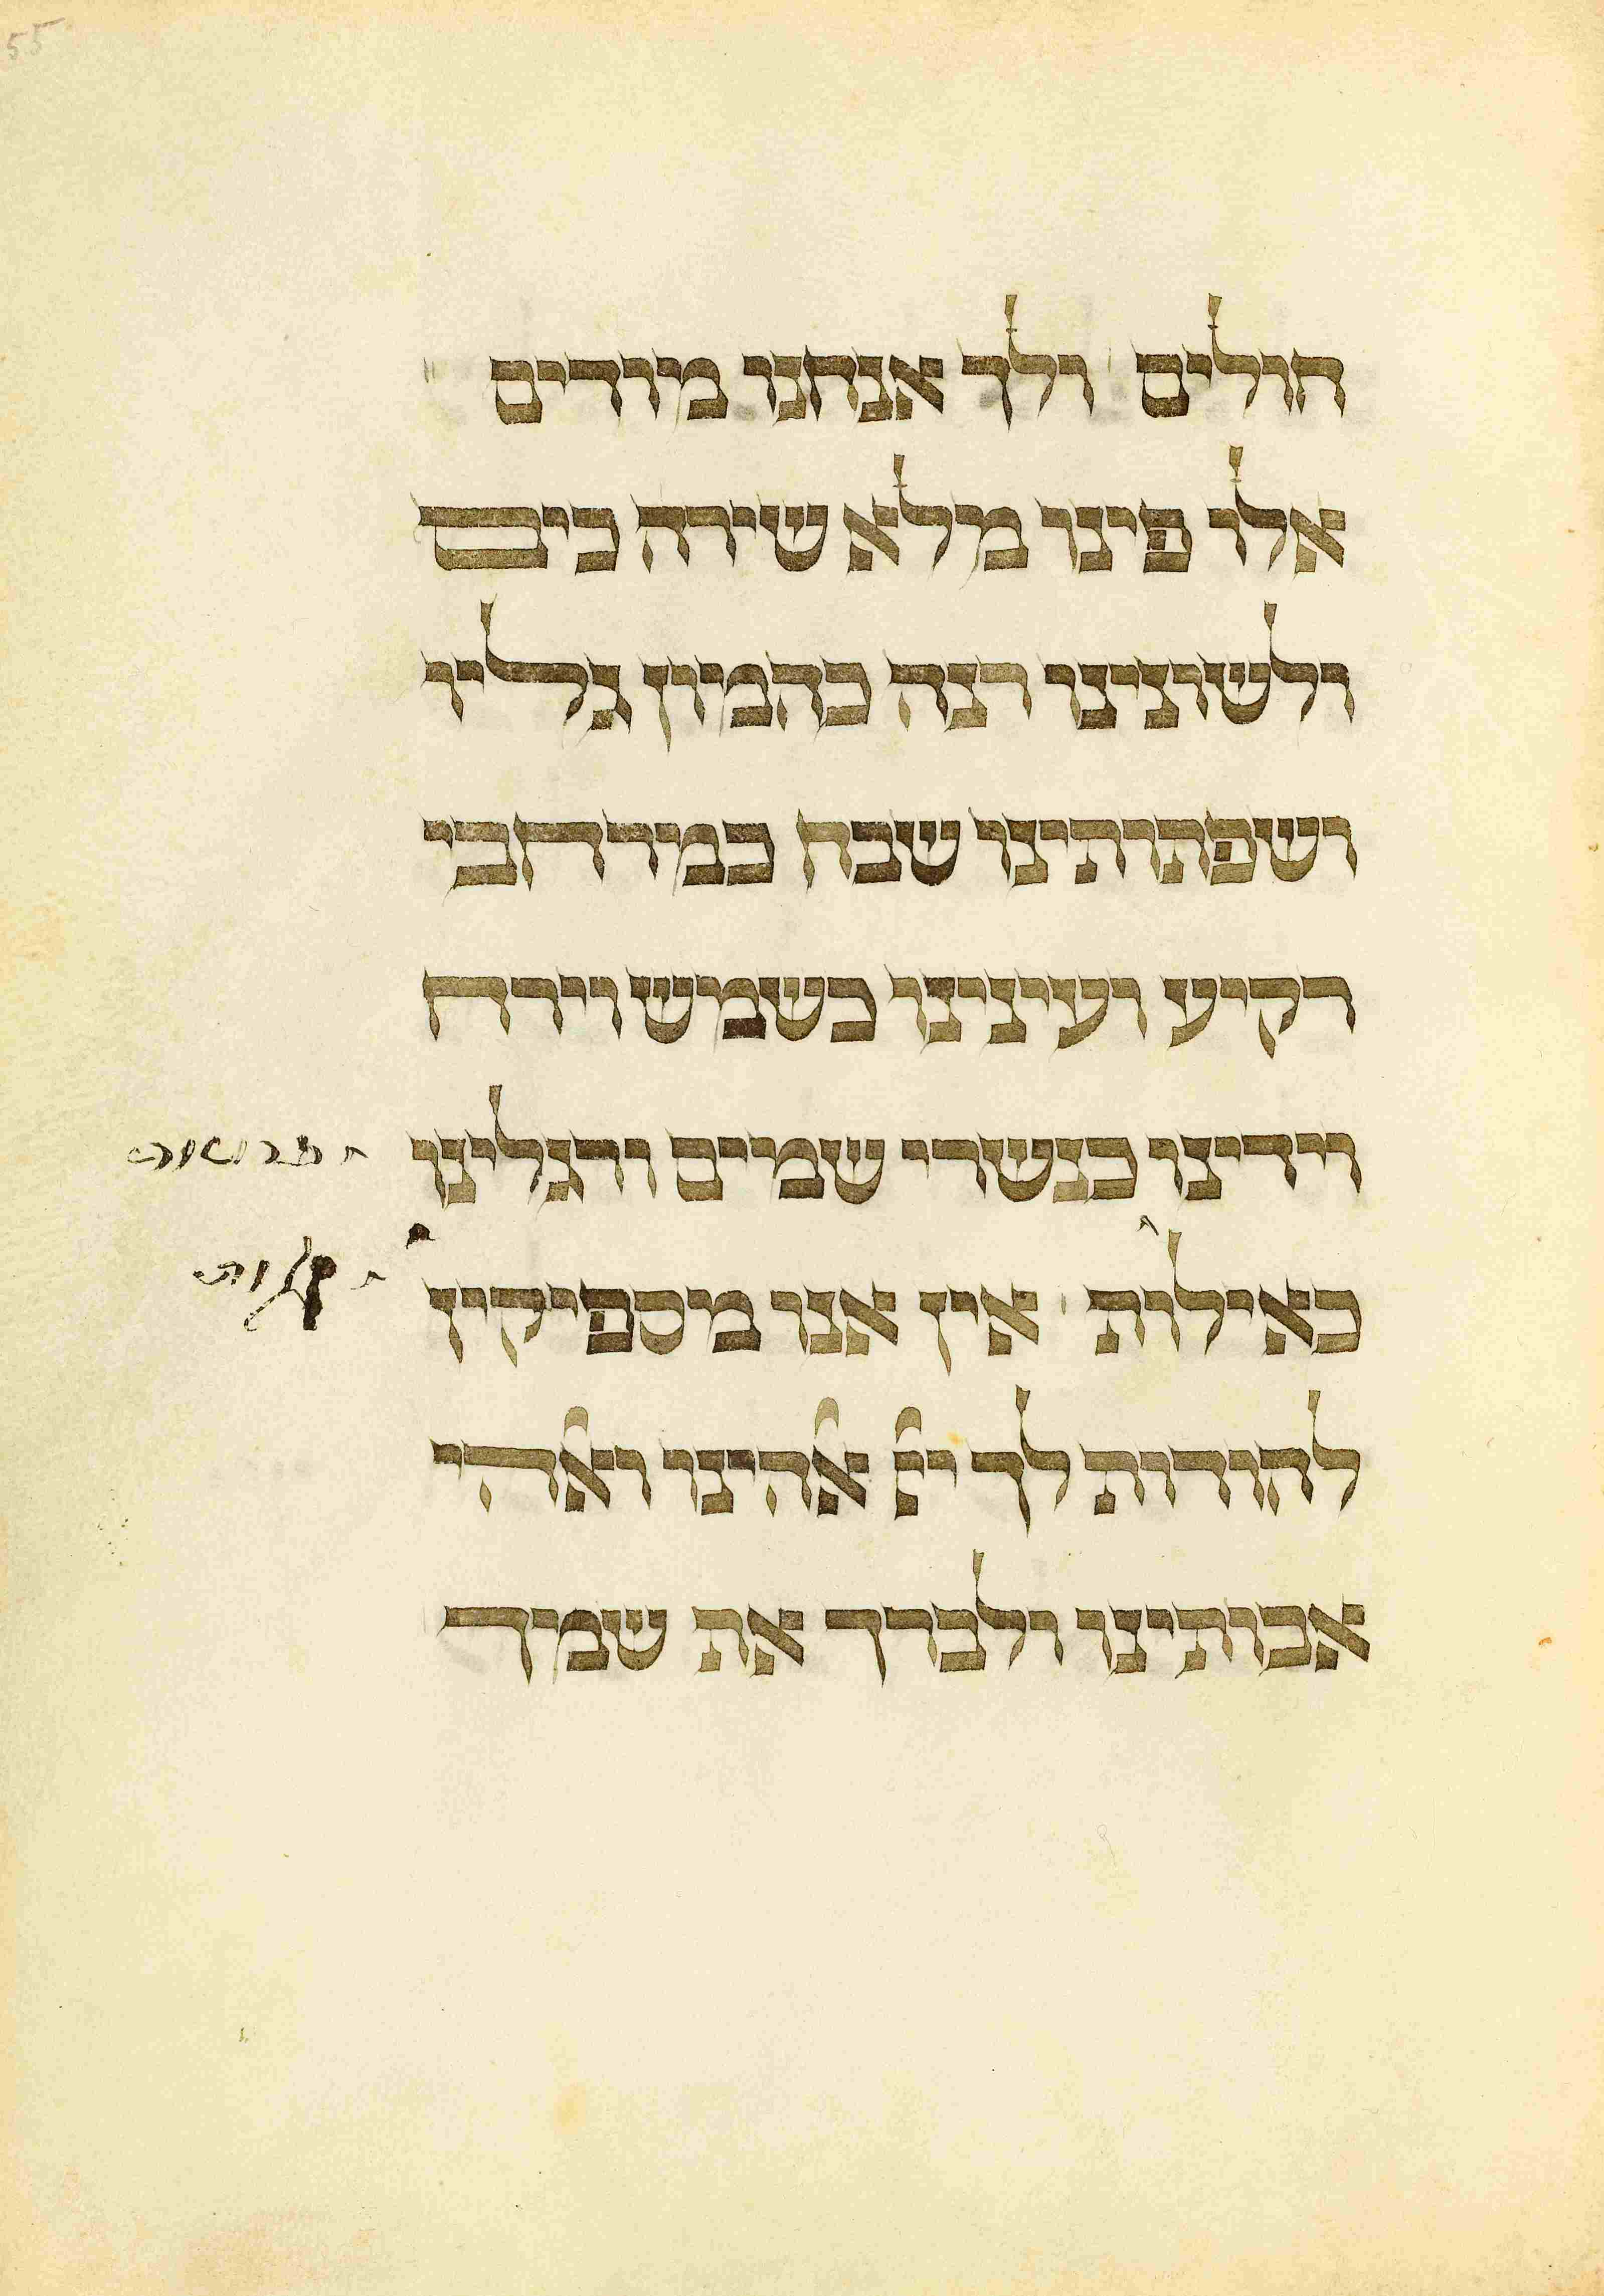 חולים ולך אנחנו מודים
אלו פינו מלא שירה כים
ולשונינו רנה כהמון גליו
ושפתותינו שבח כמרחבי
רקיע ועינינו כשמש וירח
וידינו כנשרי שמים ורגלינו
פרושות
כאילות אין אנו מספיקין
קלות
להודות לך יי ﭏהינו וﭏהי
אבותינו ולברך את שמך
55